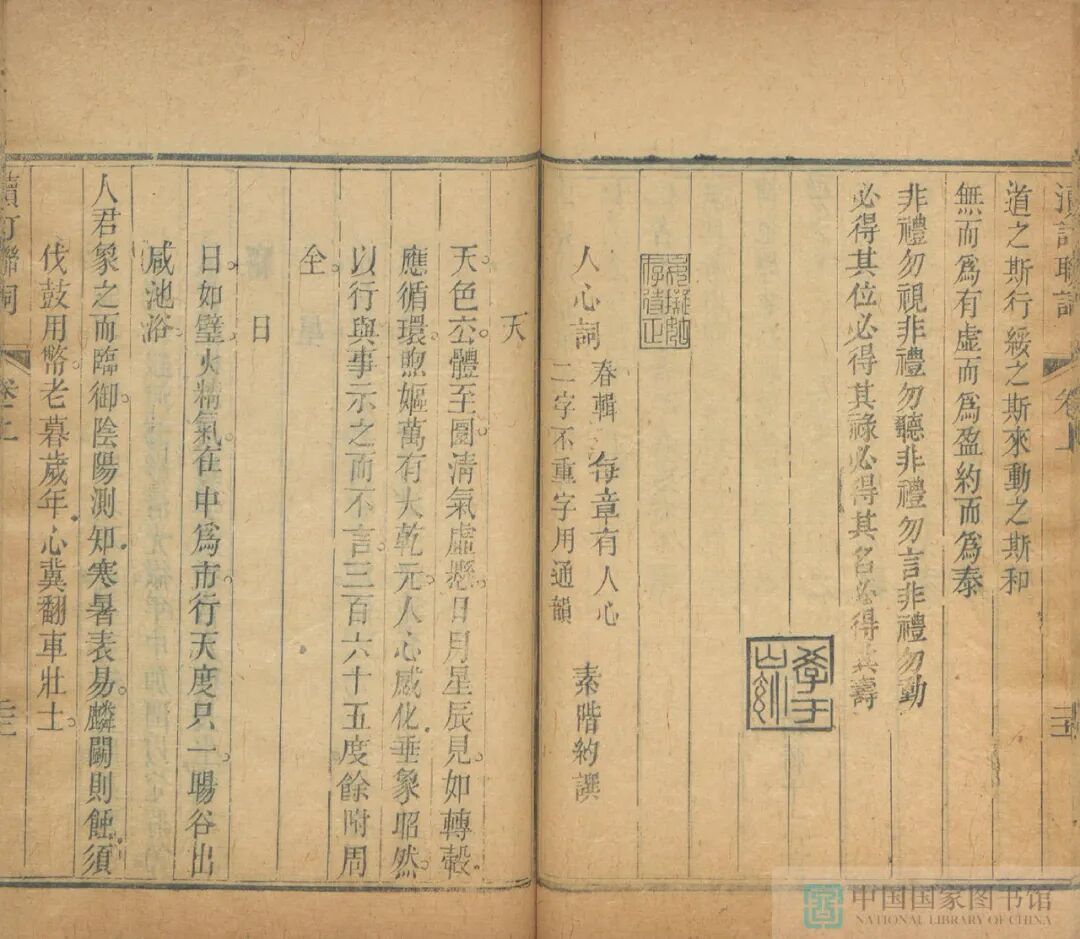 續訂聯詞 卷上
道之斯行綏之斯來動之斯和
無而爲有虛而爲盈約而爲泰
非禮勿視非禮勿聽非禮勿言非禮勿動
必得其位必得其祿必得其名必得其壽
人心詞 春輯 每章有人心二字不重字用通韻 素階約譔
天
天色亽。體至圜。清氣虛懸。日月星辰見。如轉轂。
應循環。煦嫗萬有大乾元。人心感化。垂象昭然。
以行與事示之而不言。三百六十五度餘附周
全。
日
日。如璧火精。氣在中爲市。行天度只一。暘谷出
咸池浴。
人君象之而臨御。陰陽測知。寒暑表易。麟鬭則蝕。須
伐鼓用幣。老暮歲年。心冀翻車壯士。
續訂聯詞 卷上
中国国家图书馆
NATIONAL LIBRARY OF CHINA